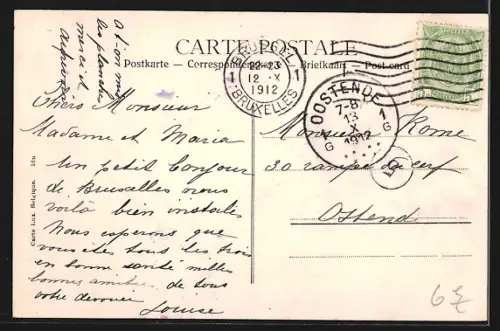 CARTE POSTALE
Postkarte — Correspondenzkarte — Briefkaart — Post card
BRUXELLES 1
BRUSSEL 1
22-23
12 X
1912
OOSTENDE
7-8
13
X
1912
1 G
1 G
a t'on mis
les planches
merci
Chers Monsieur
Madame et Maria
Un petit bonjour
de Bruxelles nous
voilà bien instalés
Nous esperons que
vous êtes tous les trois
en bonne santé milles
bonnes amities de tous
votre devouée
Louise
Monsieur Rome
30 rampe du cerf
Ostend
Carte Lux. Belgique.
6